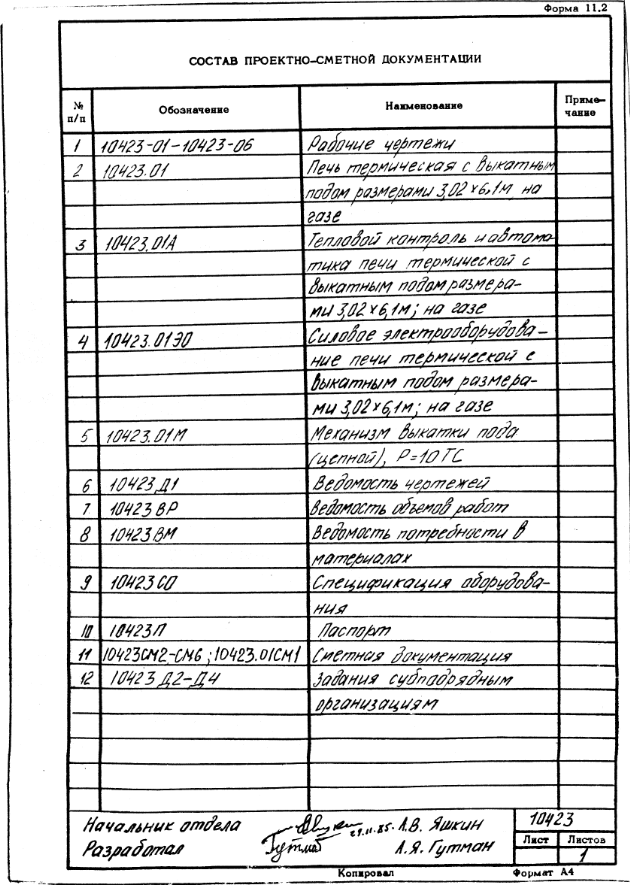 Форма 11.2
СОСТАВ ПРОЕКТНО-СМЕТНОЙ ДОКУМЕНТАЦИИ
№ п/п Обозначение Наименование Приме-чание
1 10423-01-10423-06 Рабочие чертежи
2 10423.01 Печь термическая с выкатным
подом размерами 3,02×6,1м, на
газе
3 10423.01А Тепловой контроль и автома-
тика печи термической с
выкатным подом размера-
ми 3,02×6,1м; на газе
4 10423.01ЭО Силовое электрооборудова-
ние печи термической с
выкатным подом размера-
ми 3,02×6,1м; на газе
5 10423.01М Механизм выкатки пода
(цепной), Р=10ТС
6 10423Д1 Ведомость чертежей
7 10423ВР Ведомость объемов работ
8 10423ВМ Ведомость потребности в
материалах
9 10423СО Спецификация оборудова-
ния
10 10423П Паспорт
11 10423СМ2-СМ6; 10423.01СМ1 Сметная документация
12 10423Д2-Д4 Задания субподрядным
организациям
Начальник отдела 29.11.85. А.В. Яшкин 10423
Разработал Гутман А.Я. Гутман Лист Листов
1
Копировал Формат А4